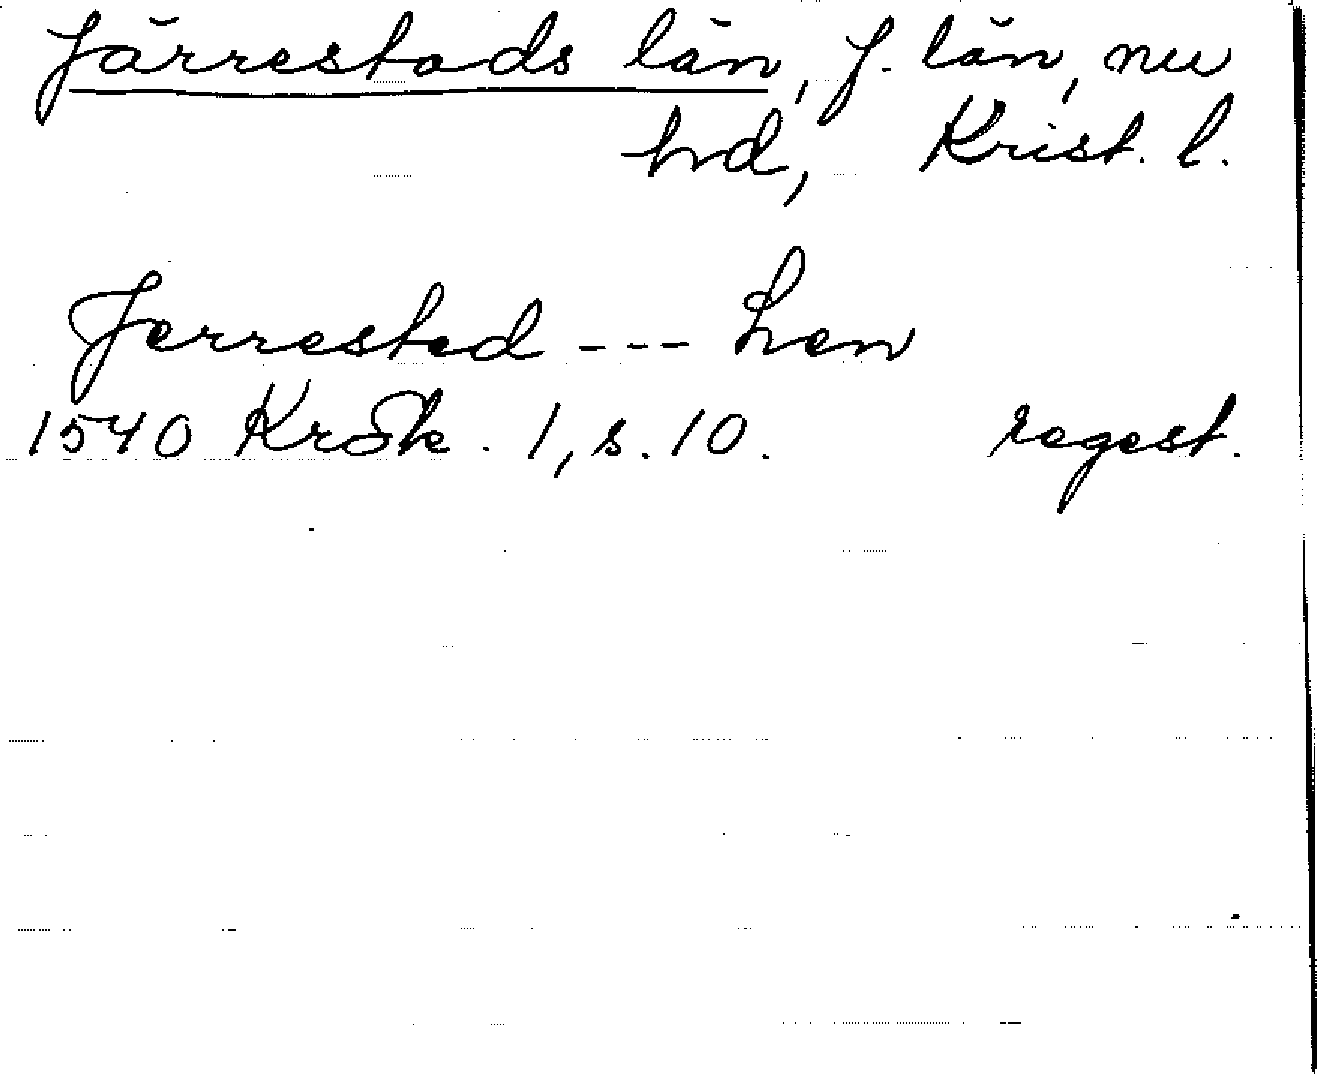 Järrestads län, J. län, nu
hd, Krist. l.
Jerrested --- Len
1540 KrÖSk. 1, s. 10. regest.